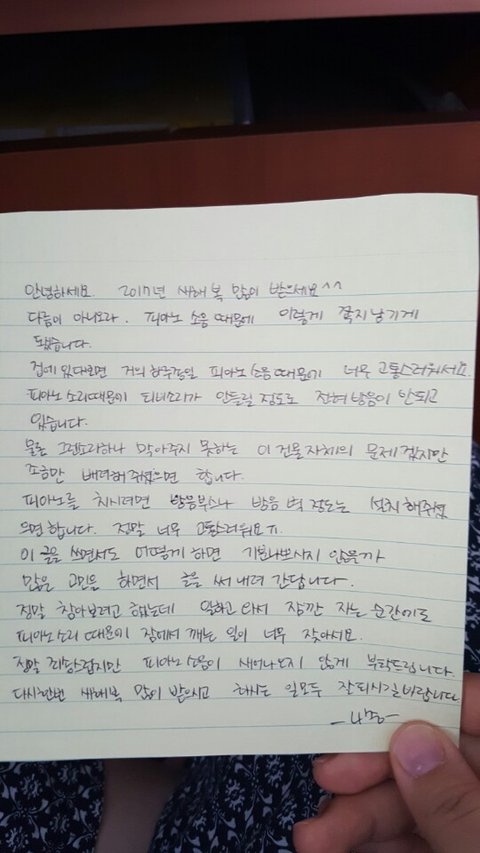 안녕하세요. 2017년 새해 복 많이 받으세요^^
다름이 아니오라. 피아노 소음 때문에 이렇게 쪽지 남기게
됐습니다.
집에 있다보면 거의 하루종일 피아노 소음 때문에 너무 고통스러워서요.
피아노 소리때문에 티비소리가 안들릴 정도로 전혀 방음이 안되고
있습니다.
물론 그런소리하나 막아주지 못하는 이 건물 자체의 문제겠지만
조금만 배려해 주셨으면 합니다.
피아노를 치시려면 방음부스나 방음 벽 정도는 설치해주셨
으면 합니다. 정말 너무 고통스러워요ㅠ.
이 글을 쓰면서도 어떻게 하면 기분나쁘시지 않을까
많은 고민을 하면서 글을 써 내려 간답니다.
정말 참아보려고 했는데 일하고 와서 잠깐 자는 순간에도
피아노 소리 때문에 잠에서 깨는 일이 너무 잦아서요.
정말 죄송스럽지만 피아노 소음이 새어나오지 않게 부탁드립니다.
다시한번 새해복 많이 받으시고 하시는 일모두 잘되시길바랍니다